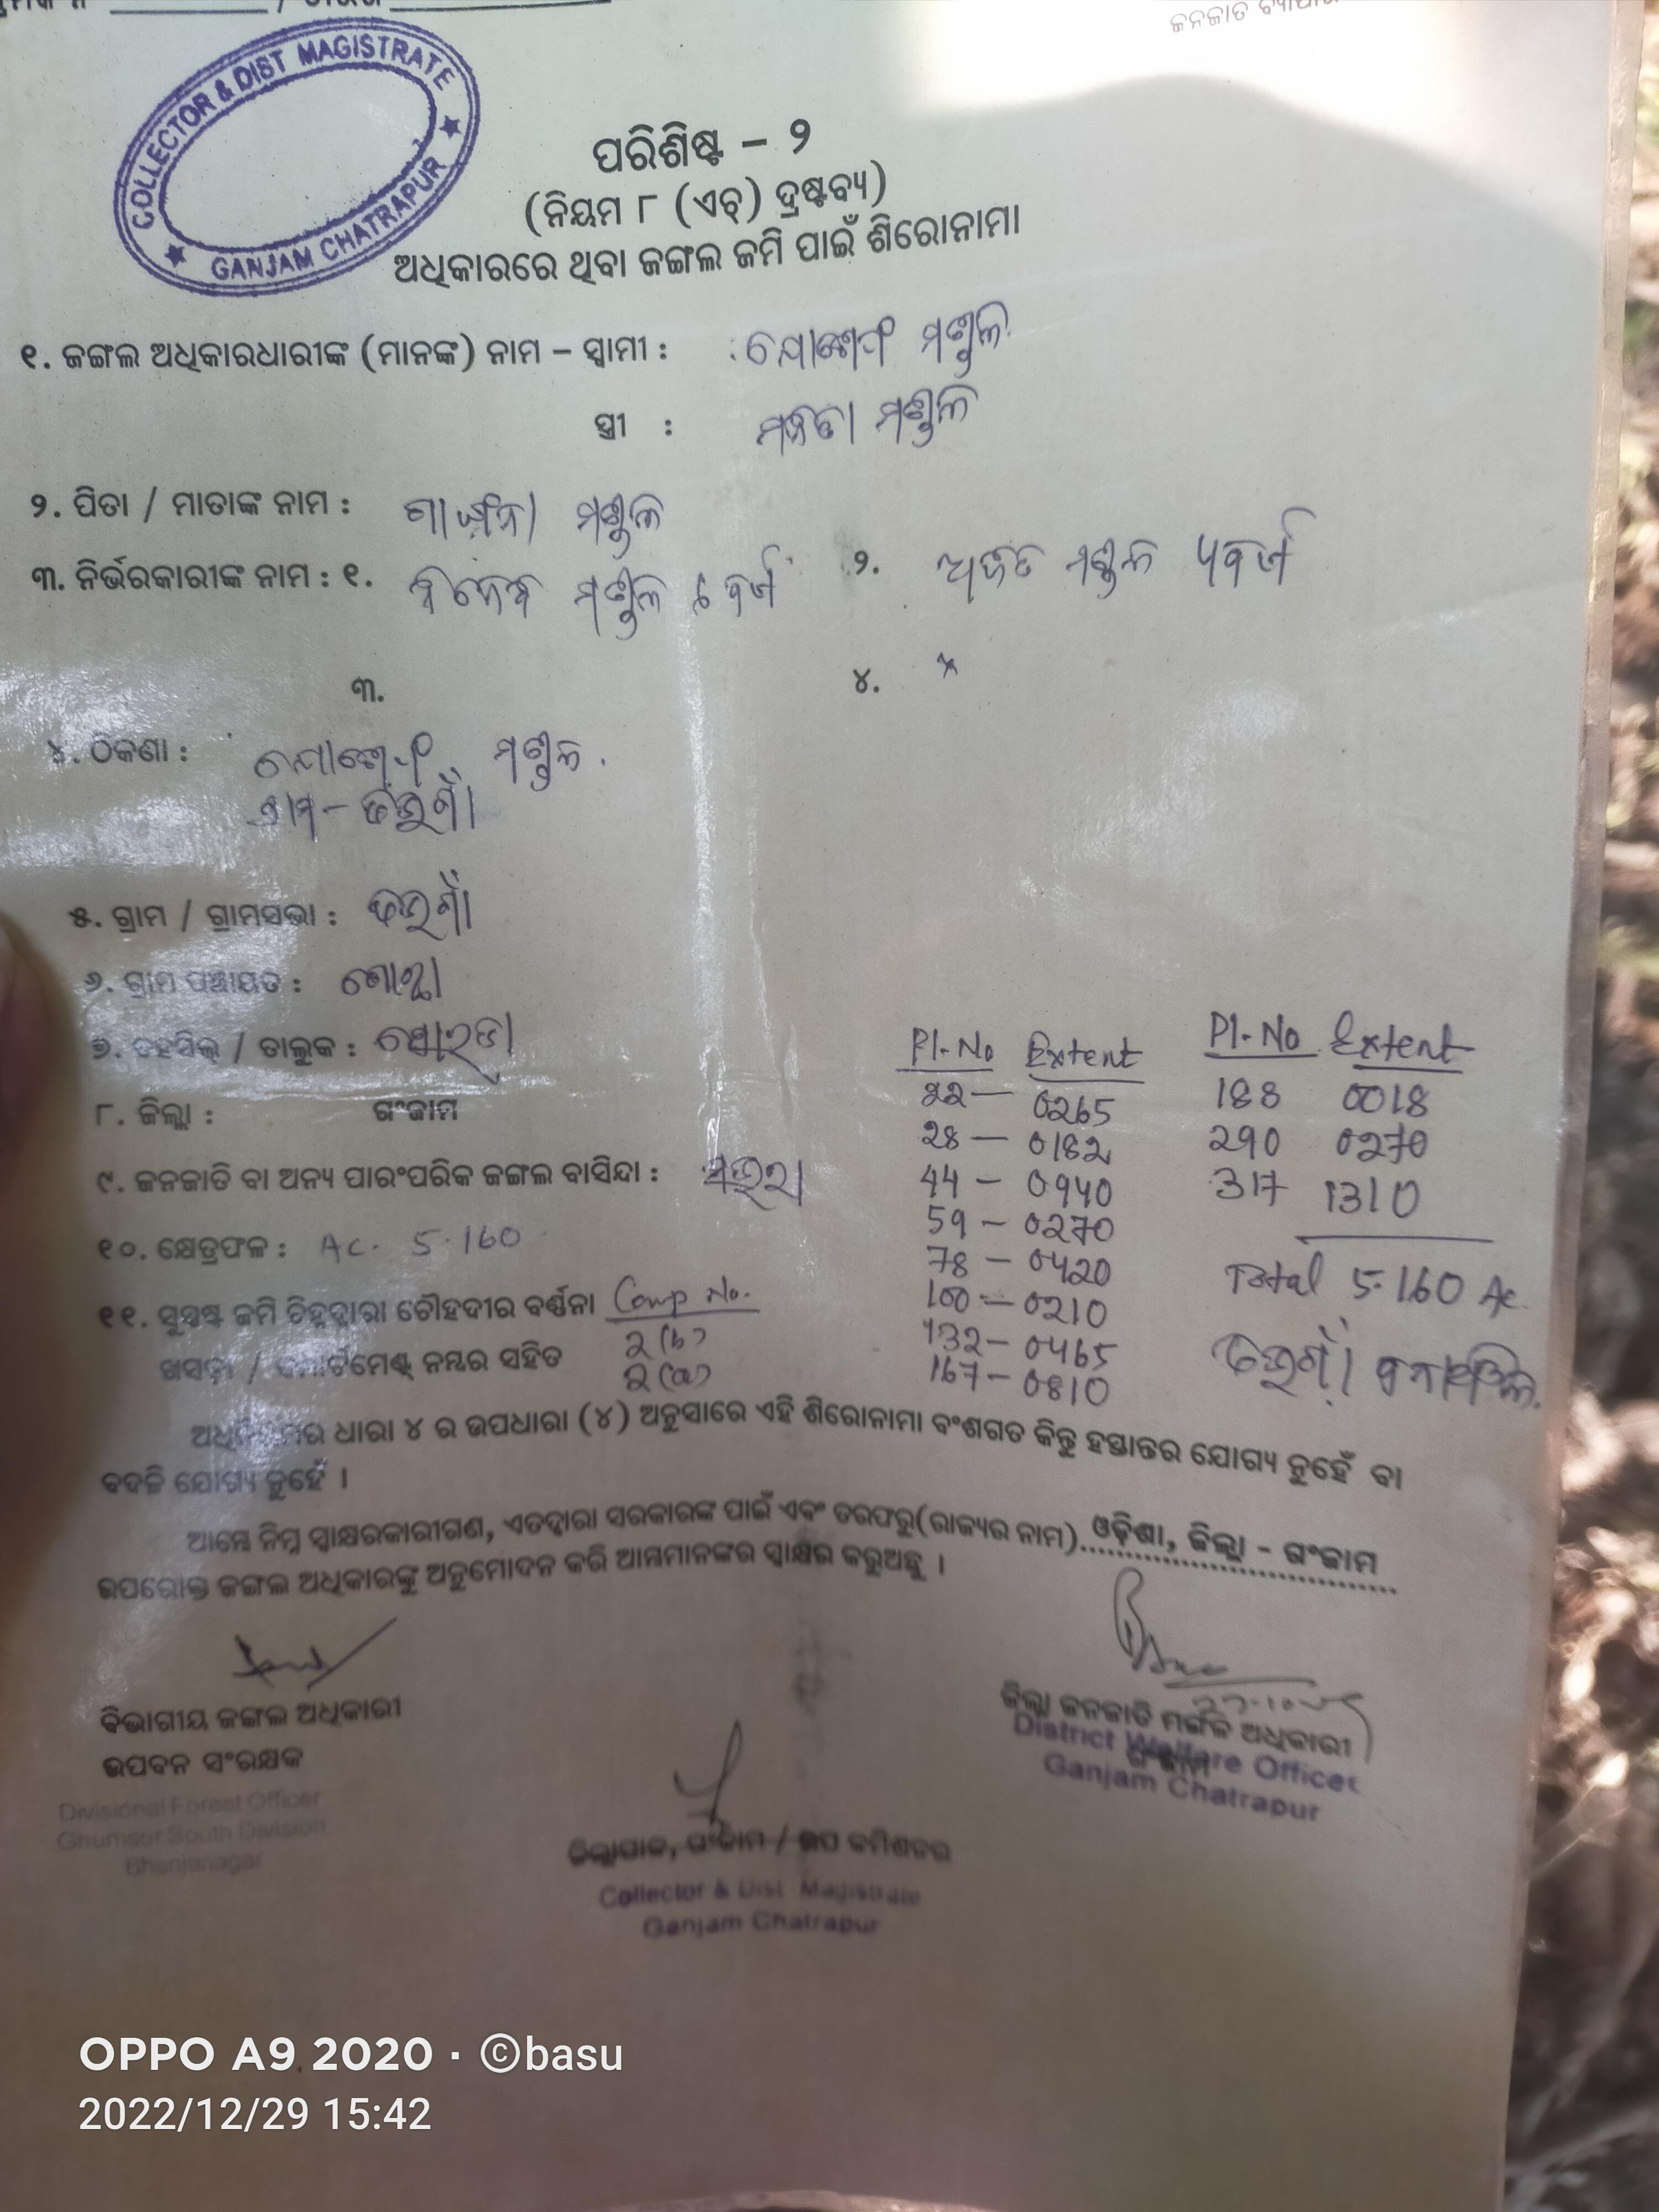 COLLECTOR & DIST MAGISTRATE
GANJAM CHATRAPUR
ପରିଶିଷ୍ଟ – ୨
(ନିୟମ ୮ (ଏଚ୍) ଦ୍ରଷ୍ଟବ୍ୟ)
ଅଧିକାରରେ ଥିବା ଜଙ୍ଗଲ ଜମି ପାଇଁ ଶିରୋନାମା
୧. ଜଙ୍ଗଲ ଅଧିକାରଧାରୀଙ୍କ (ମାନଙ୍କ) ନାମ – ସ୍ୱାମୀ : ମଣ୍ଡଳ
ସ୍ତ୍ରୀ : ମଣ୍ଡଳ
୨. ପିତା / ମାତାଙ୍କ ନାମ : ମଣ୍ଡଳ
୩. ନିର୍ଭରକାରୀଙ୍କ ନାମ : ୧. ମଣ୍ଡଳ ବର୍ଷ ୨. ମଣ୍ଡଳ ବର୍ଷ
୩. ୪. x
୪. ଠିକଣା : ମଣ୍ଡଳ
୫. ଗ୍ରାମ / ଗ୍ରାମସଭା :
୬. ଗ୍ରାମ ପଞ୍ଚାୟତ :
୭. ତହସିଲ୍ / ତାଲୁକ : ସୋରଡା
୮. ଜିଲ୍ଲା : ଗଂଜାମ
୯. ଜନଜାତି ବା ଅନ୍ୟ ପାରଂପରିକ ଜଙ୍ଗଲ ବାସିନ୍ଦା :
୧୦. କ୍ଷେତ୍ରଫଳ : Ac. 5.160
୧୧. ସୁସ୍ପଷ୍ଟ ଜମି ଚିହ୍ନଦ୍ୱାରା ଚୌହଦୀର ବର୍ଣ୍ଣନା Comp No.
ଖସଡ଼ା / କମ୍ପାର୍ଟମେଣ୍ଟ ନମ୍ବର ସହିତ 2(b)
2(a)
Pl-No Extent
22 — 0265
28 — 0182
44 — 0940
59 — 0270
78 — 0420
100 — 0210
132 — 0465
167 — 0810
Pl-No Extent
188 0018
290 0270
317 1310
Total 5.160 Ac.
ଅଧିନିୟମର ଧାରା ୪ ର ଉପଧାରା (୪) ଅନୁସାରେ ଏହି ଶିରୋନାମା ବଂଶଗତ କିନ୍ତୁ ହସ୍ତାନ୍ତର ଯୋଗ୍ୟ ନୁହେଁ ବା
ବଦଳି ଯୋଗ୍ୟ ନୁହେଁ ।
ଆମ୍ଭେ ନିମ୍ନ ସ୍ୱାକ୍ଷରକାରୀଗଣ, ଏତଦ୍ଦ୍ୱାରା ସରକାରଙ୍କ ପାଇଁ ଏବଂ ତରଫରୁ(ରାଜ୍ୟର ନାମ)...ଓଡ଼ିଶା, ଜିଲ୍ଲା - ଗଂଜାମ
ଉପରୋକ୍ତ ଜଙ୍ଗଲ ଅଧିକାରଙ୍କୁ ଅନୁମୋଦନ କରି ଆମ୍ଭମାନଙ୍କର ସ୍ୱାକ୍ଷର କରୁଅଛୁ ।
ବିଭାଗୀୟ ଜଙ୍ଗଲ ଅଧିକାରୀ
ଉପବନ ସଂରକ୍ଷକ
Divisional Forest Officer
Ghumsur South Division
Bhanjanagar
ଜିଲ୍ଲାପାଳ, ଗଂଜାମ / ଉପ କମିଶନର
Collector & Dist. Magistrate
Ganjam Chatrapur
ଜିଲ୍ଲା ଜନଜାତି ମଙ୍ଗଳ ଅଧିକାରୀ
ଗଂଜାମ
District Welfare Officer
Ganjam Chatrapur
OPPO A9 2020 · ©basu
2022/12/29 15:42